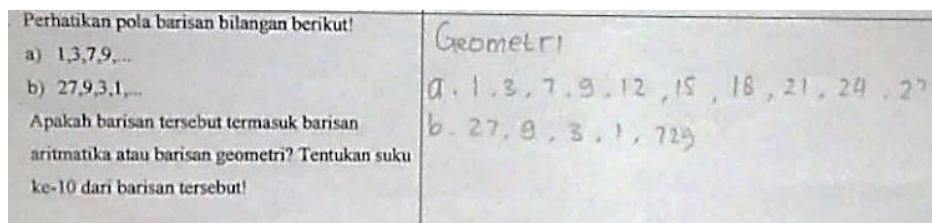 Perhatikan pola barisan bilangan berikut!
a) 1,3,7,9,...
b) 27,9,3,1,...
Apakah barisan tersebut termasuk barisan
aritmatika atau barisan geometri? Tentukan suku
ke-10 dari barisan tersebut!
Geometri
a. 1.3, 7.9.12, 15, 18, 21, 24, 27
b. 27, 9, 3, 1, 729